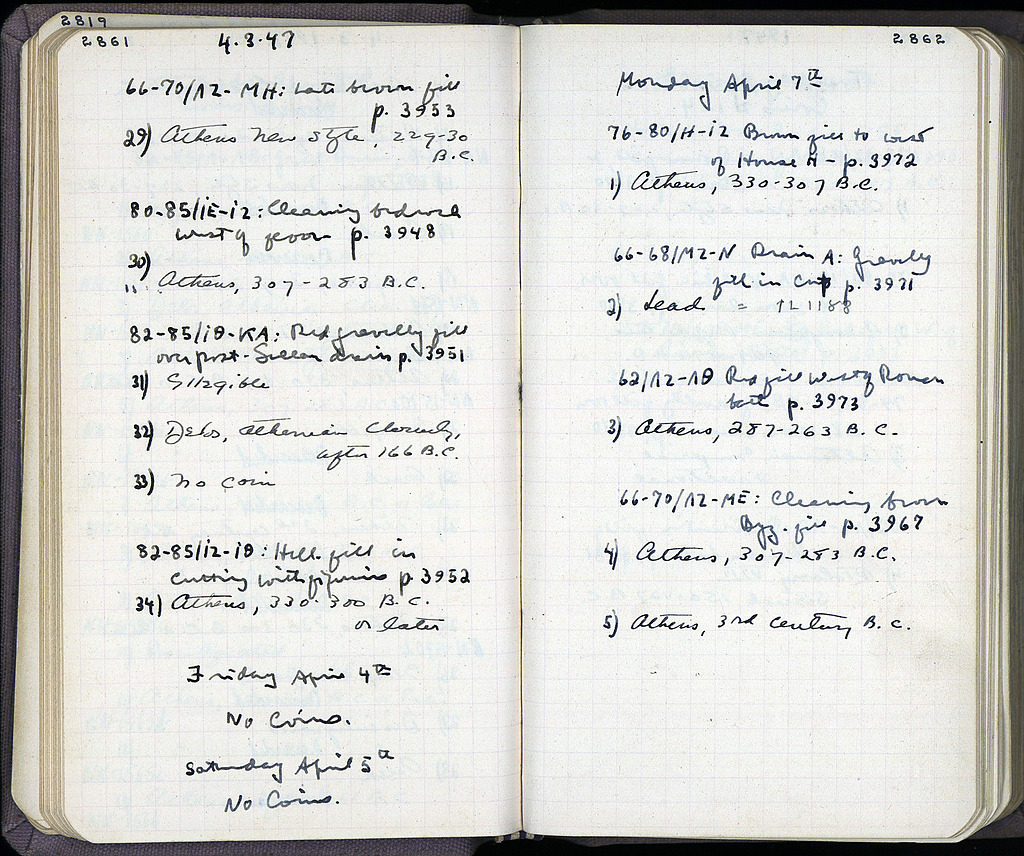 2819
2861
4.3.47
66-70/ΛΖ-ΜΗ: Late brown fill
p. 3953
29) Athens New Style, 229-30
B.C.
80-85/ΙΕ-ΙΖ: Cleaning bedrock
west of floor p. 3948
30)
" Athens, 307-283 B.C.
82-85/ΙΘ-ΚΑ: Red gravelly fill
over post-Sullan drains p. 3951
31) Illegible
32) Delos, Athenian Cleruchy,
after 166 B.C.
33) No coin
82-85/ΙΖ-ΙΘ: Hell. fill in
cutting with p. 3952
34) Athens, 330-300 B.C.
or later
Friday April 4th
No Coins.
Saturday April 5th
No Coins.
2862
Monday April 7th
76-80/Η-ΙΖ Brown fill to west
of House H - p. 3972
1) Athens, 330-307 B.C.
66-68/ΜΖ-Ν Drain A: Gravelly
fill in p. 3971
2) Lead = IL 1188
62/ΛΖ-ΛΘ Red fill west of Roman
bath p. 3973
3) Athens, 287-263 B.C.
66-70/ΛΖ-ΜΕ: Cleaning brown
Byz. fill p. 3967
4) Athens, 307-283 B.C.
5) Athens, 3rd Century B.C.